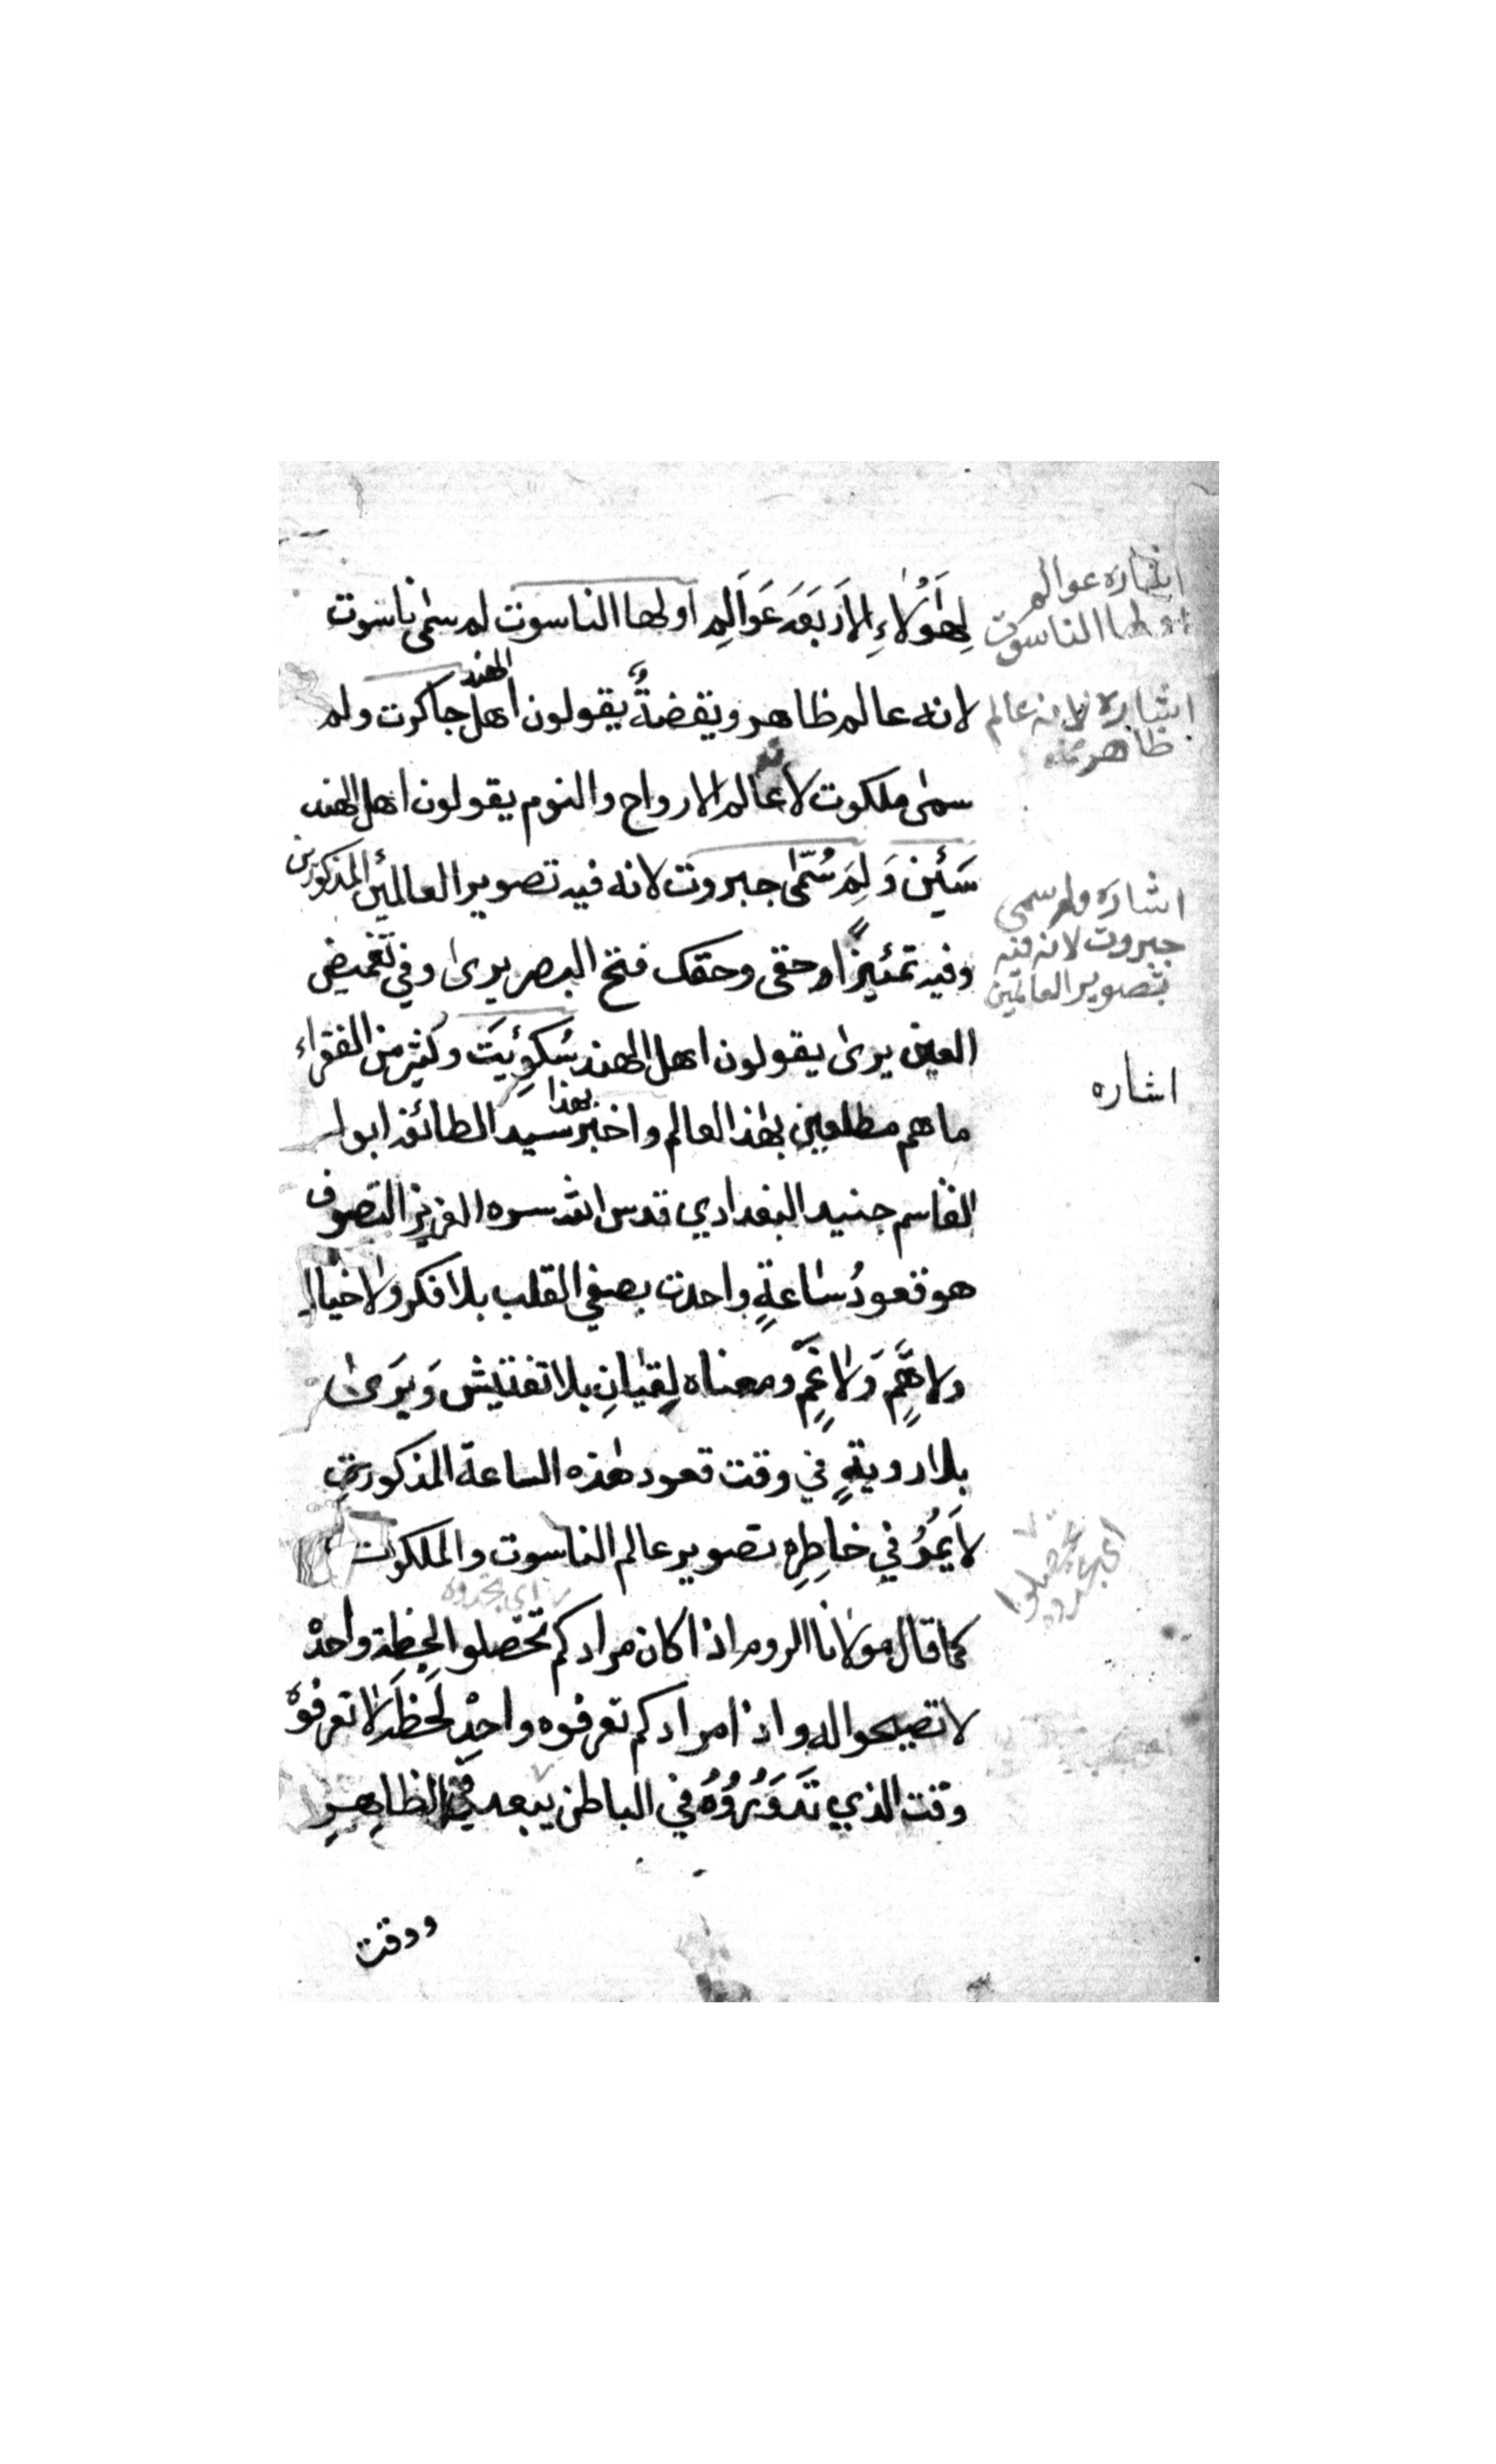 لِهٰؤُلاءِ الأَربَعَه عَوَالِم اولها الناسوت لم سمّى ناسوت
لانه عالم ظاهر ويقضةٌ يقولون اهل الهند جاكرت ولم
سمى ملكوت لانه عالم الارواح والنوم يقولون اهل الهند
سَئِين وَلِمَ سُمّى جبروت لانه فيه تصوير العالمين المذكورين
وفيه تمئيزًا حقى وحقك فتح البصر يرى وفي تغميض
العين يرى يقولون اهل الهند سُكوِئِيَت وكثير من الفقراء
ماهم مطلعين بهذا العالم واخبر بهذا سيد الطائفه ابو ا
لقاسم جنيد البغدادي قدس الله سره العزيز التصوف
هو قعودُ ساعةٍ واحدت بصفي القلب بلا فكر ولا خيال
ولا هَمٍّ وَلا غَمٍّ ومعناه لِقيَانِ بلا تفتيش وَيَرَى
بلا رويةٍ في وقت قعود هذه الساعة المذكورت
لايَمُرُّ في خاطِرِه تصوير عالم الناسوت والملكوت
اي تجدوه
كما قال مولانا الروم اذا كان مرادكم تحصلوا لحظة واحدْ
لا تصيحوا له واذا مرادكم تعرفوه واحِدْ لَحظَه لا تعرفوهُ
وقت الذي تَدَوِّرُوُهُ في الباطن يبعد في الظاهِرِ
ووقت
اشاره عوالم
اولها الناسوت
اشاره لانه عالم
ظاهر
اشاره ولم سمي
جبروت لانه فيه
تصوير العالمين
اشاره
تحصلوا
اي تجدوه